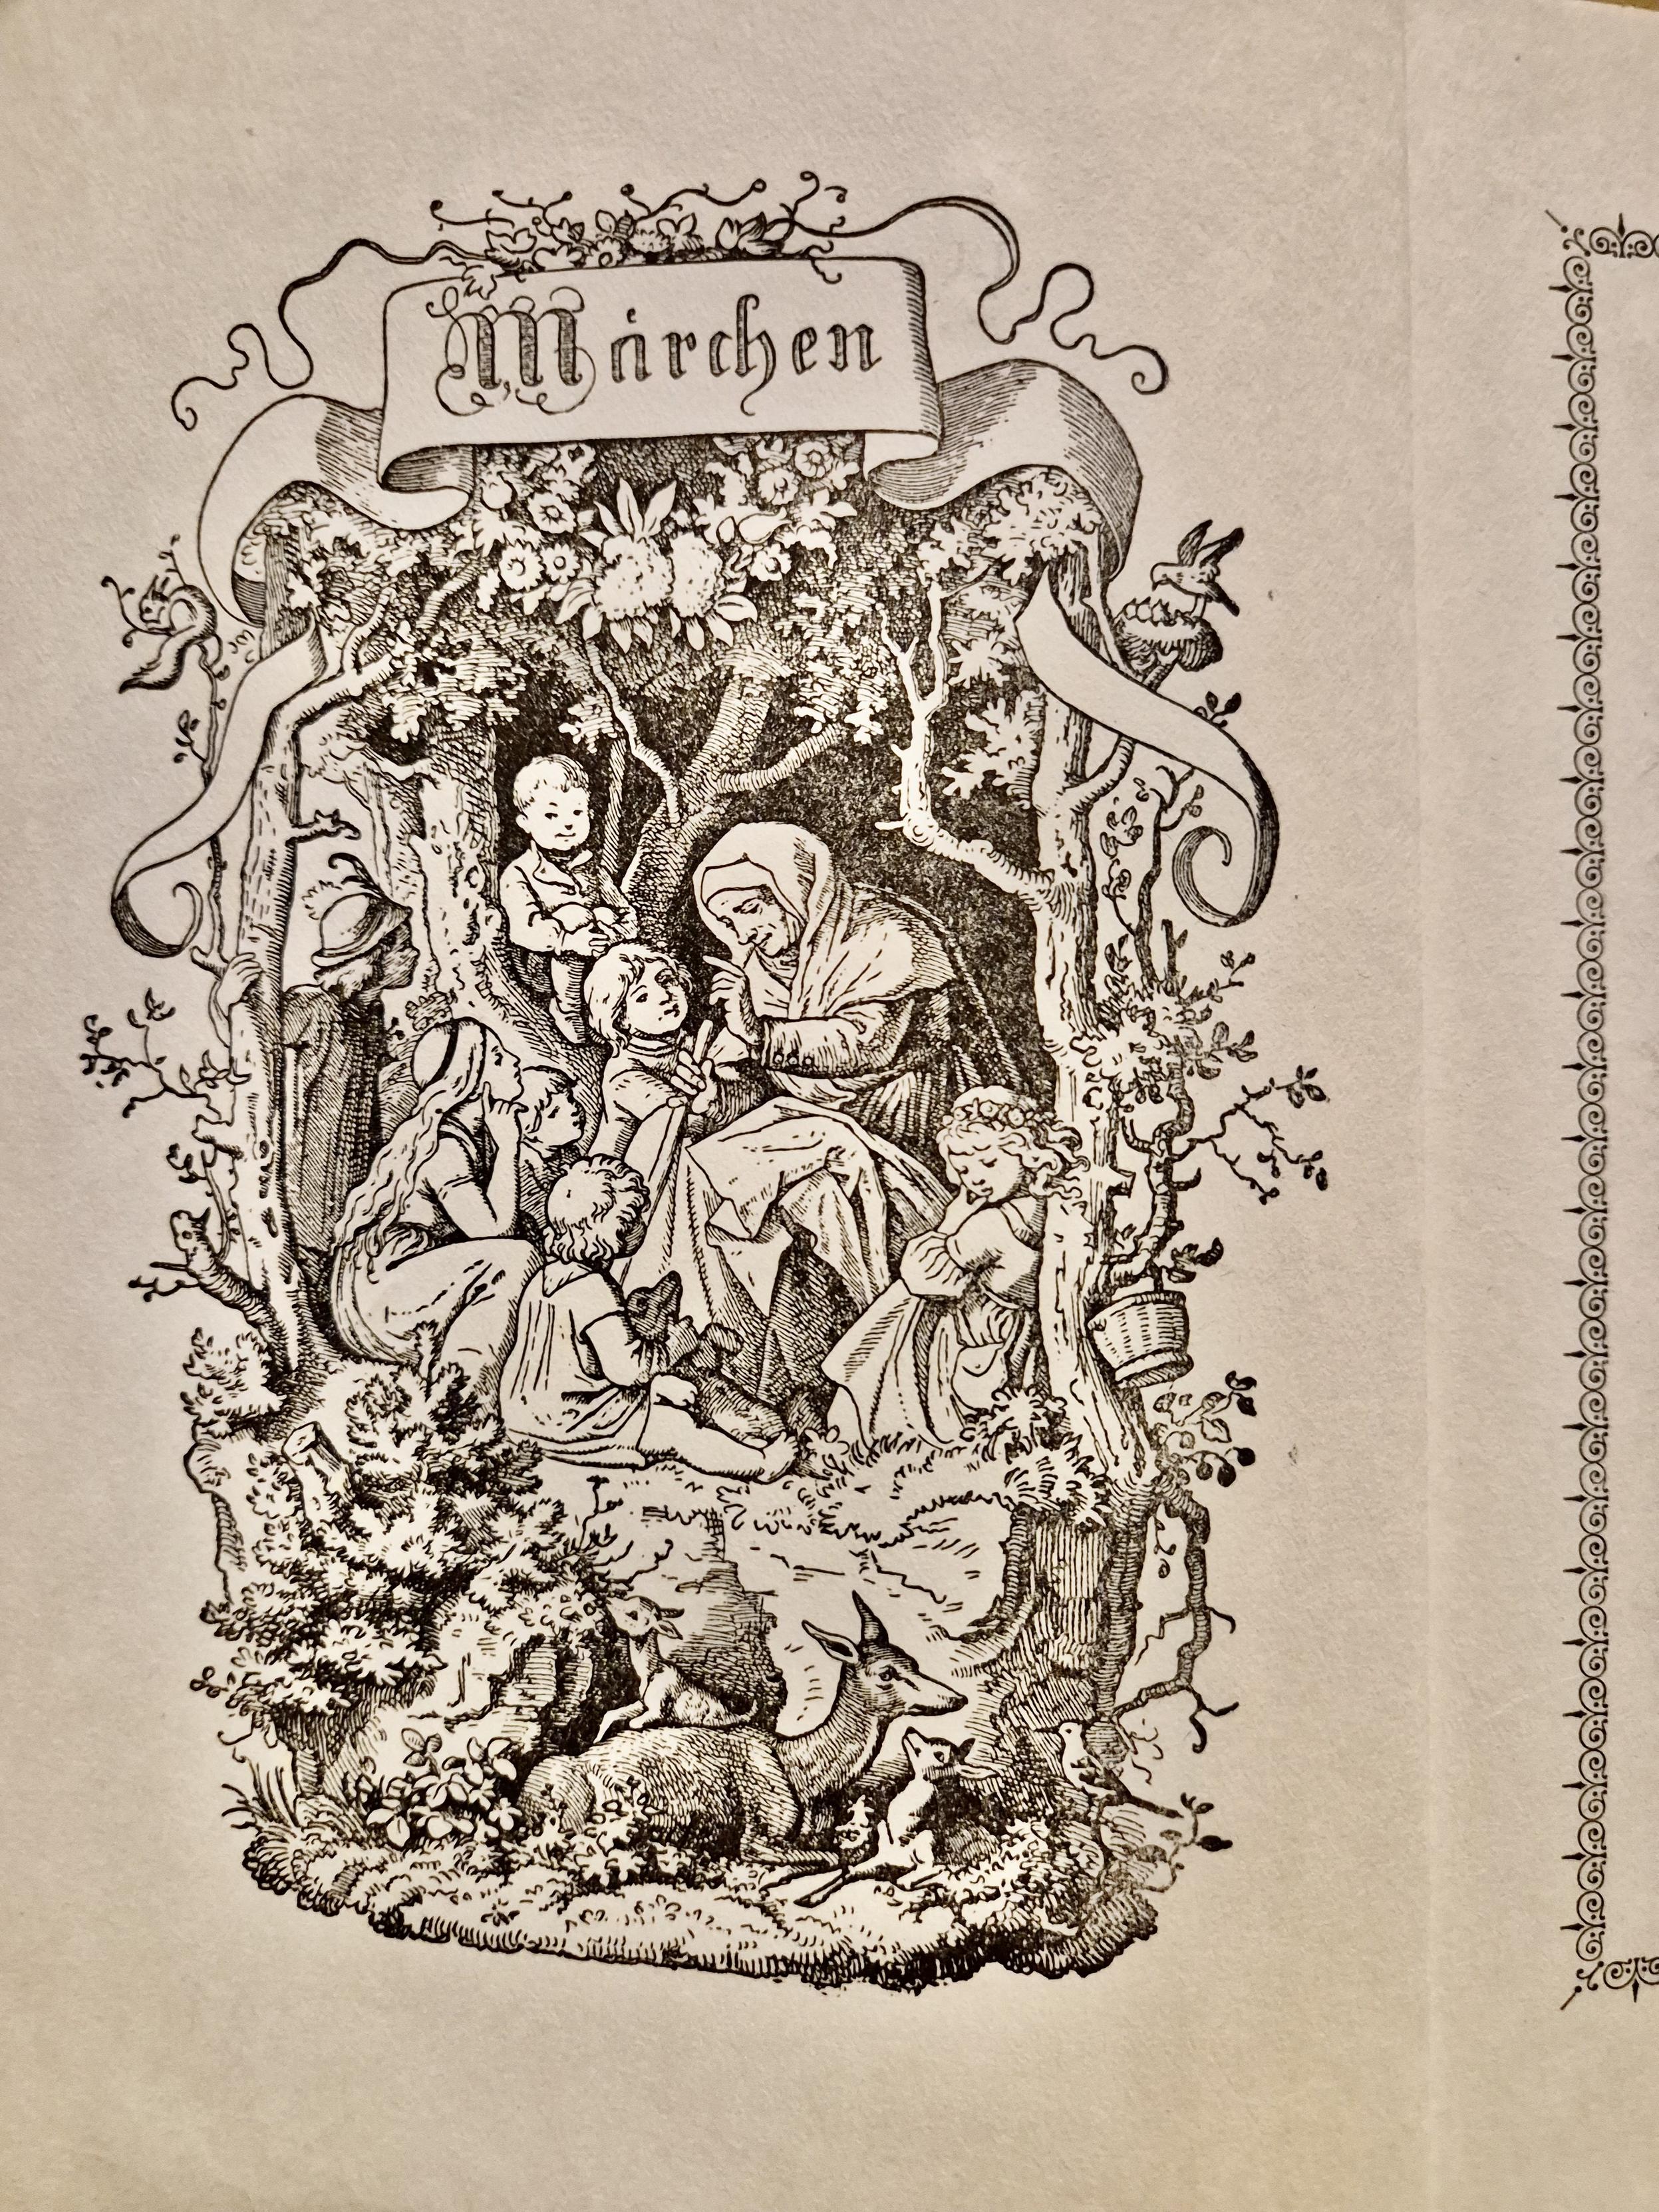 Märchen